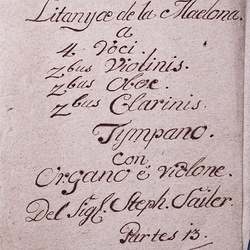 Litanyæ de la Madona.
a
4. Voci.
2bus Violinis.
2bus Oboe.
2bus Clarinis.
Tympano.
con
Organo è Violone.
Del Sigl. Steph. Sailer.
Partes 13.